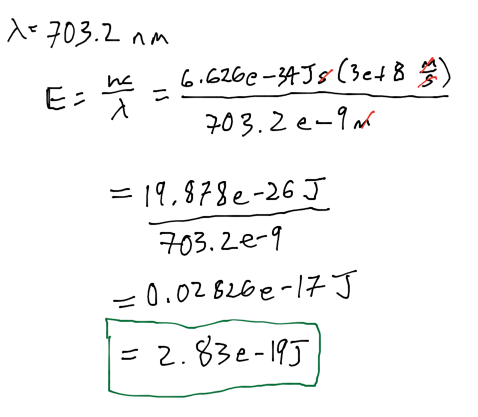 λ= 703.2 nm
E = hc/λ = 6.626e-34Js(3e+8 m/s)/703.2e-9m
= 19.878e-26 J/703.2e-9
= 0.02826e-17 J
= 2.83e-19J